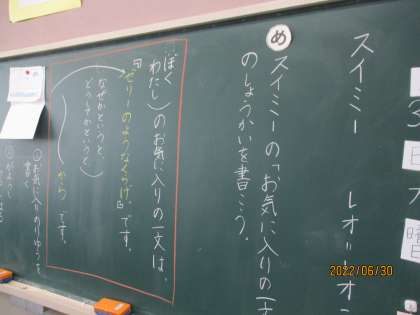 スイミー　レオ＝レオ
め
スイミーの「お気に入りの一
のしょうかいを書こう。
（ぼく
わたし）のお気に入りの一文は、
『ゼリーのようなくらげ。』です。
なぜかというと、
どうしてかというと、
から　です。
①お気に入りのりゆうを
書く
日
曜
2022/06/30